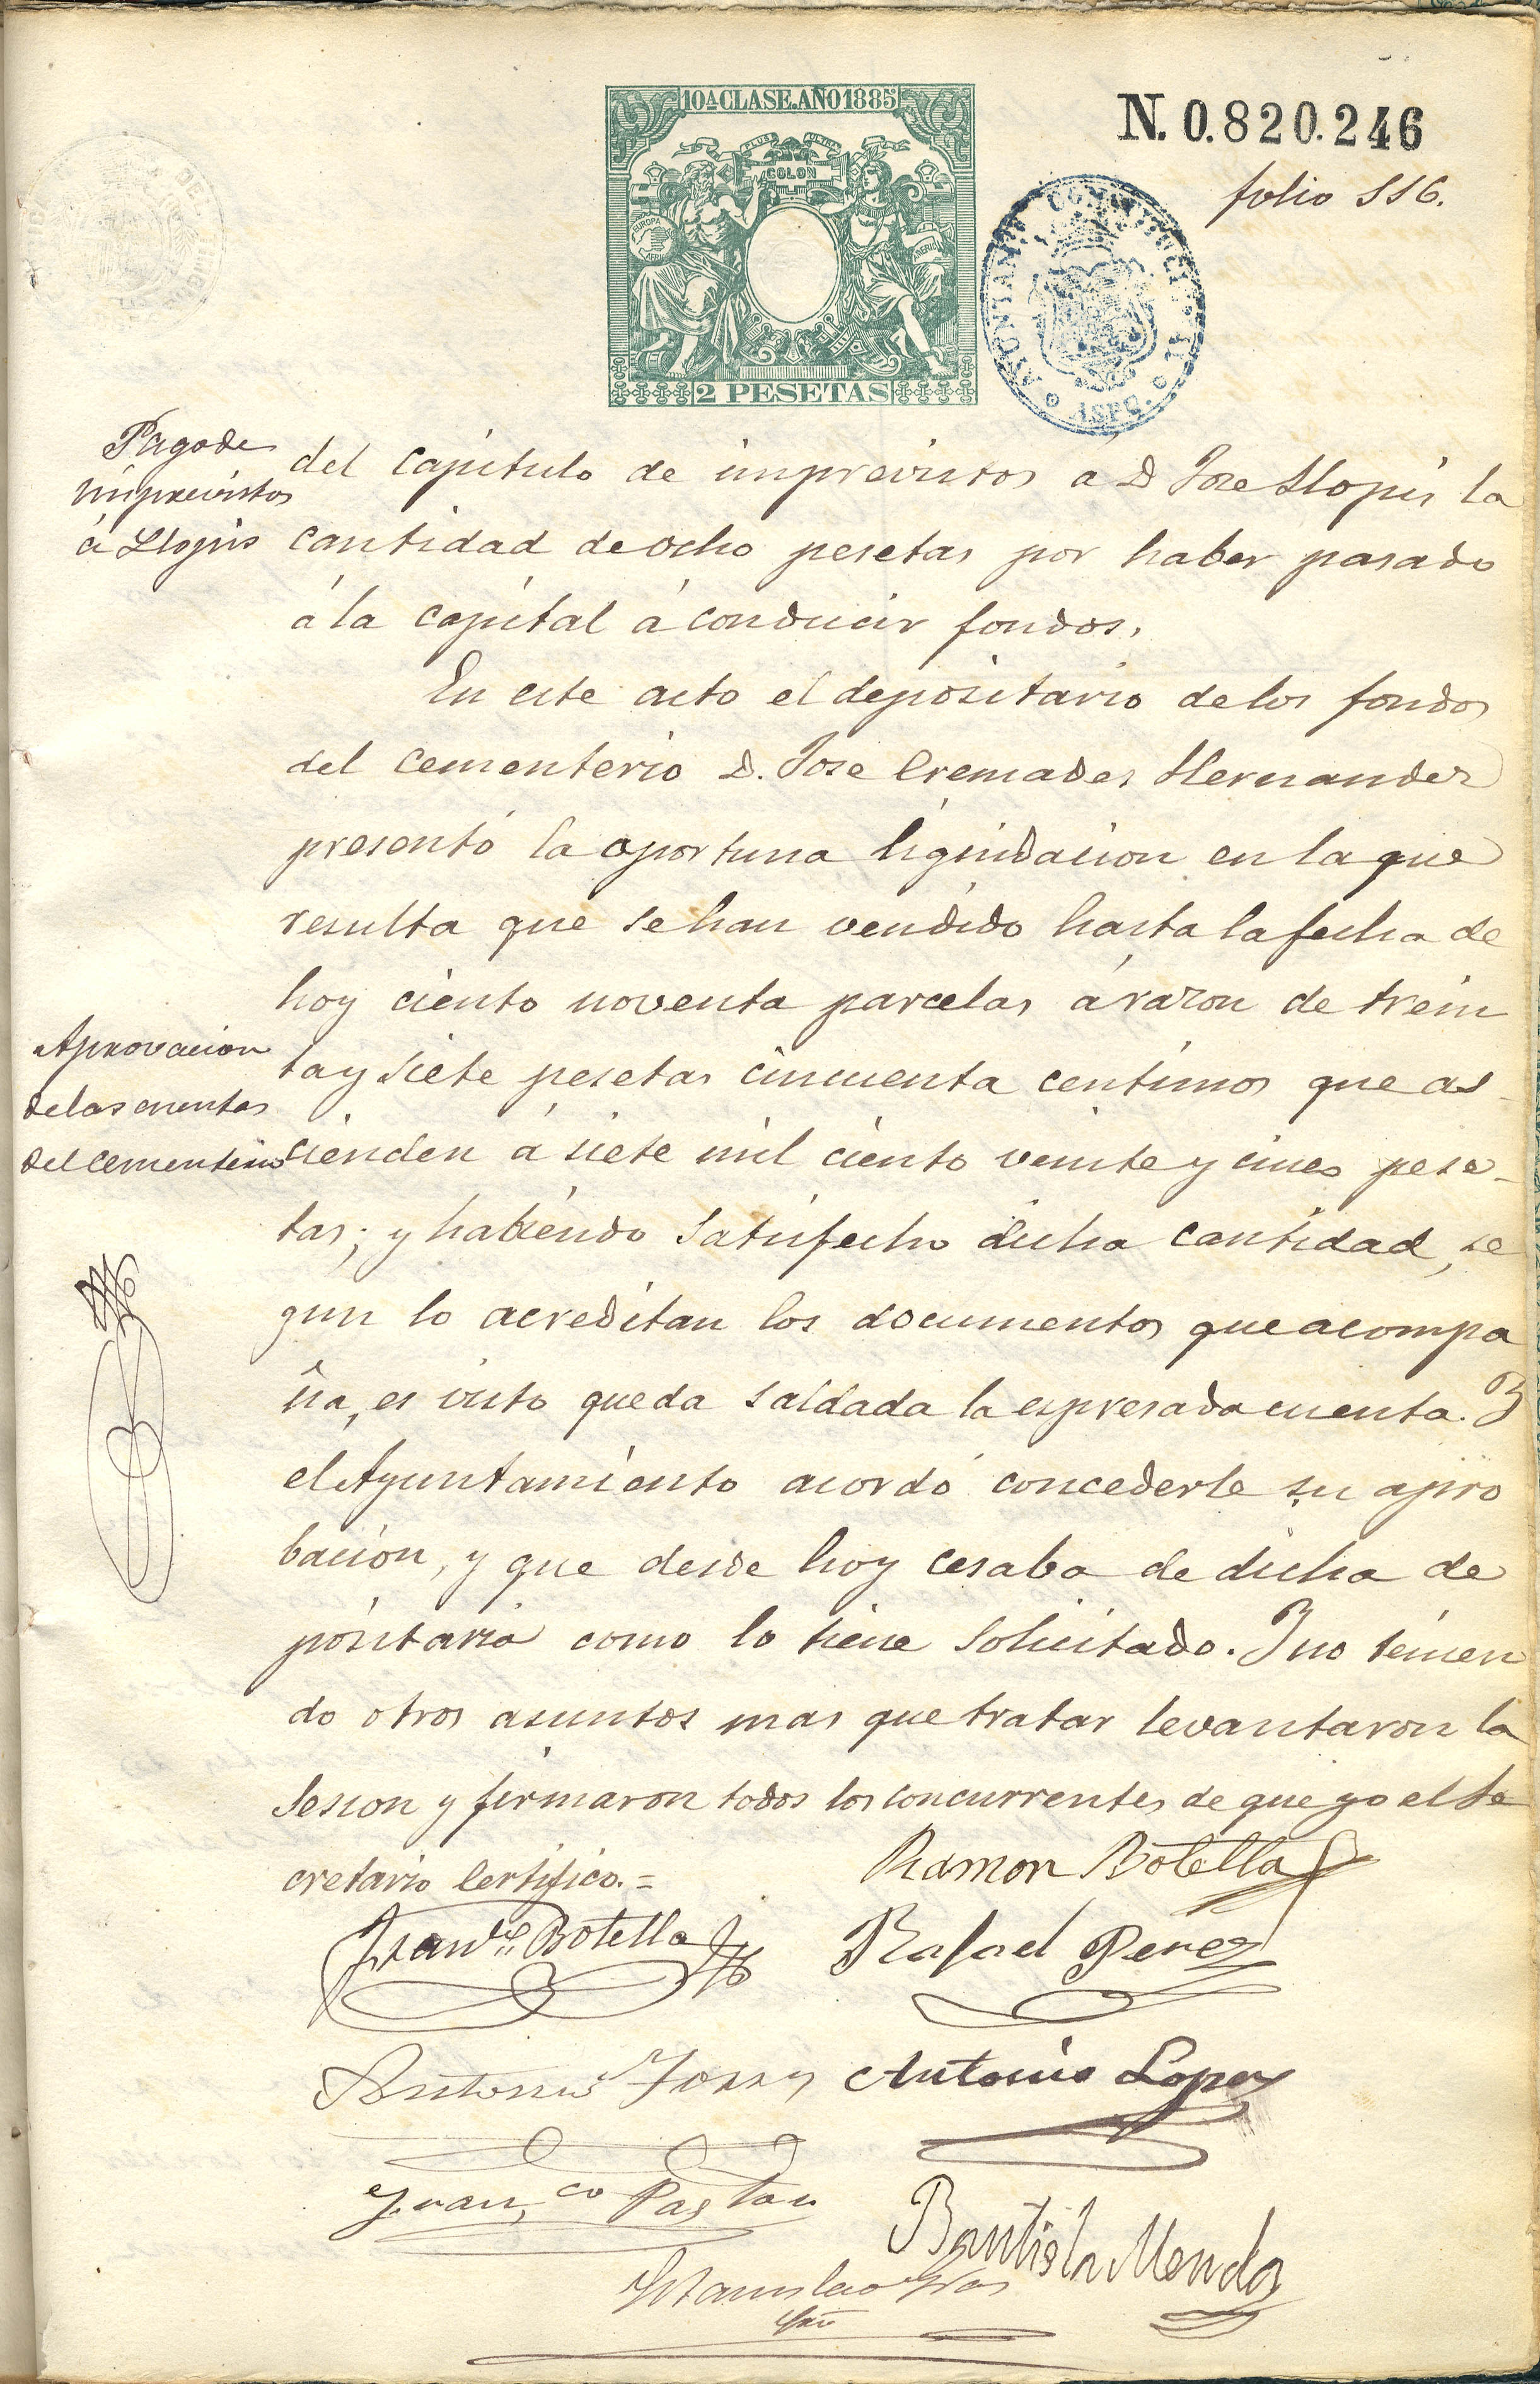 10ª CLASE. AÑO 1885
PLUS ULTRA
COLON
EUROPA
2 PESETAS
N. 0.820.246
folio 116.
AYUNTAM CONSTITUCI
ASPE
Pago de
imprevistos
á Llopis
del capitulo de imprevistos á D Jose Llopis la
cantidad de ocho pesetas por haber pasado
á la capital á conducir fondos.
En este acto el depositario de los fondos
del cementerio D. Jose Cremades Hernandez
presentó la oportuna liquidacion en la que
resulta que se han vendido hasta la fecha de
hoy ciento noventa parcelas á razon de trein
ta y siete pesetas cincuenta centimos que as-
cienden á siete mil ciento veinte y cinco pese-
tas; y habiendo satisfecho dicha cantidad, se
gun lo acreditan los documentos que acompa
ña, es visto queda saldada la espresada cuenta. Y
el Ayuntamiento acordó concederle su apro
bacion, y que desde hoy cesaba de dicha de
positaria como lo tiene solicitado. Y no tenien
do otros asuntos mas que tratar levantaron la
sesion y firmaron todos los concurrentes de que yo el Se
cretario certifico.=
Aprovacion
de las cuentas
del cementerio
Ramon Botella
Botella
Rafael Perez
Antonio
Antonio Lopez
Franco Pastor
Bautista